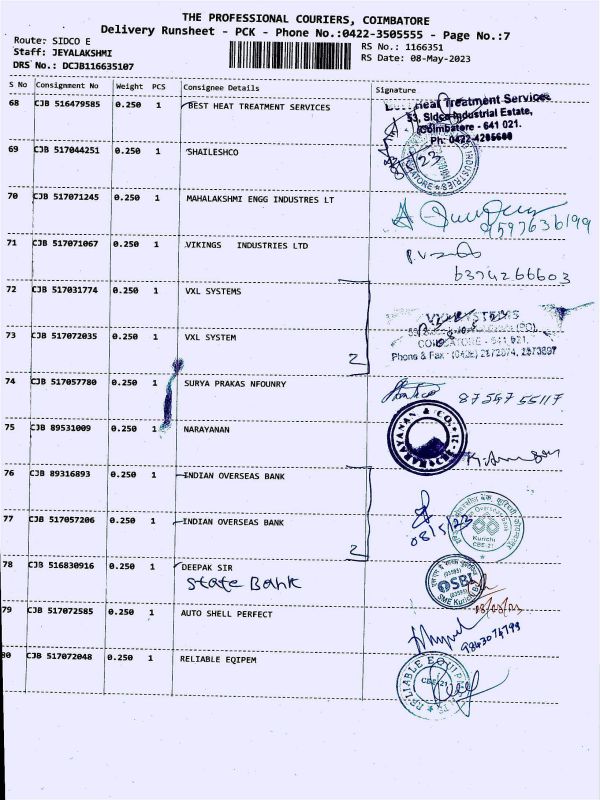 THE PROFESSIONAL COURIERS, COIMBATORE
Delivery Runsheet - PCK - Phone No.:0422-3505555 - Page No.:7
Route: SIDCO E
Staff: JEYALAKSHMI
DRS No.: DCJB116635107
RS No.: 1166351
RS Date: 08-May-2023
S No Consignment No Weight PCS Consignee Details Signature
68 CJB 516479585 0.250 1 BEST HEAT TREATMENT SERVICES
Heat Treatment Services
53, Sidco Industrial Estate,
Coimbatore - 641 021.
Ph: 0422-4206600
69 CJB 517044251 0.250 1 SHAILESHCO
70 CJB 517071245 0.250 1 MAHALAKSHMI ENGG INDUSTRES LT
9597636199
71 CJB 517071067 0.250 1 VIKINGS INDUSTRIES LTD
6374266603
72 CJB 517031774 0.250 1 VXL SYSTEMS
VXL SYSTEMS
COIMBATORE - 641 021.
Phone & Fax - (0422) 2672874, 2673697
73 CJB 517072035 0.250 1 VXL SYSTEM
2
74 CJB 517057780 0.250 1 SURYA PRAKAS NFOUNRY
87547 55117
75 CJB 89531009 0.250 1 NARAYANAN
NARAYANAN & CO.
76 CJB 89316893 0.250 1 INDIAN OVERSEAS BANK
77 CJB 517057206 0.250 1 INDIAN OVERSEAS BANK
2
08/5/23
Indian Overseas Bank
Kurichi
CBE-21
78 CJB 516830916 0.250 1 DEEPAK SIR
State Bank
SBI
SME Kurichi
79 CJB 517072585 0.250 1 AUTO SHELL PERFECT
9843074799
80 CJB 517072048 0.250 1 RELIABLE EQIPEM
RELIABLE EQUIP
CBE-21